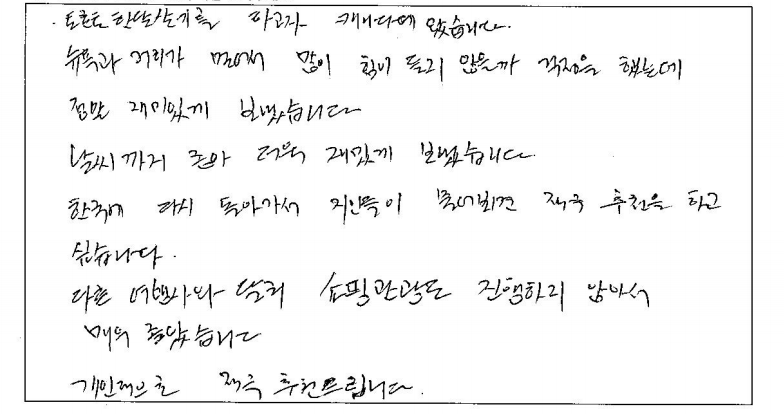 토론토 한달살기를 하고자 캐나다에 왔습니다.
뉴욕과 거리가 멀어서 많이 힘이 들지 않을까 걱정을 했는데
정말 재미있게 보냈습니다
날씨까지 좋아 더욱 재밌게 보냈습니다.
한국에 다시 돌아가서 지인들이 물어보면 적극 추천을 하고
싶습니다.
다른 여행사와 달리 쇼핑관광도 진행하지 않아서
매우 좋았습니다
개인적으로 적극 추천드립니다.